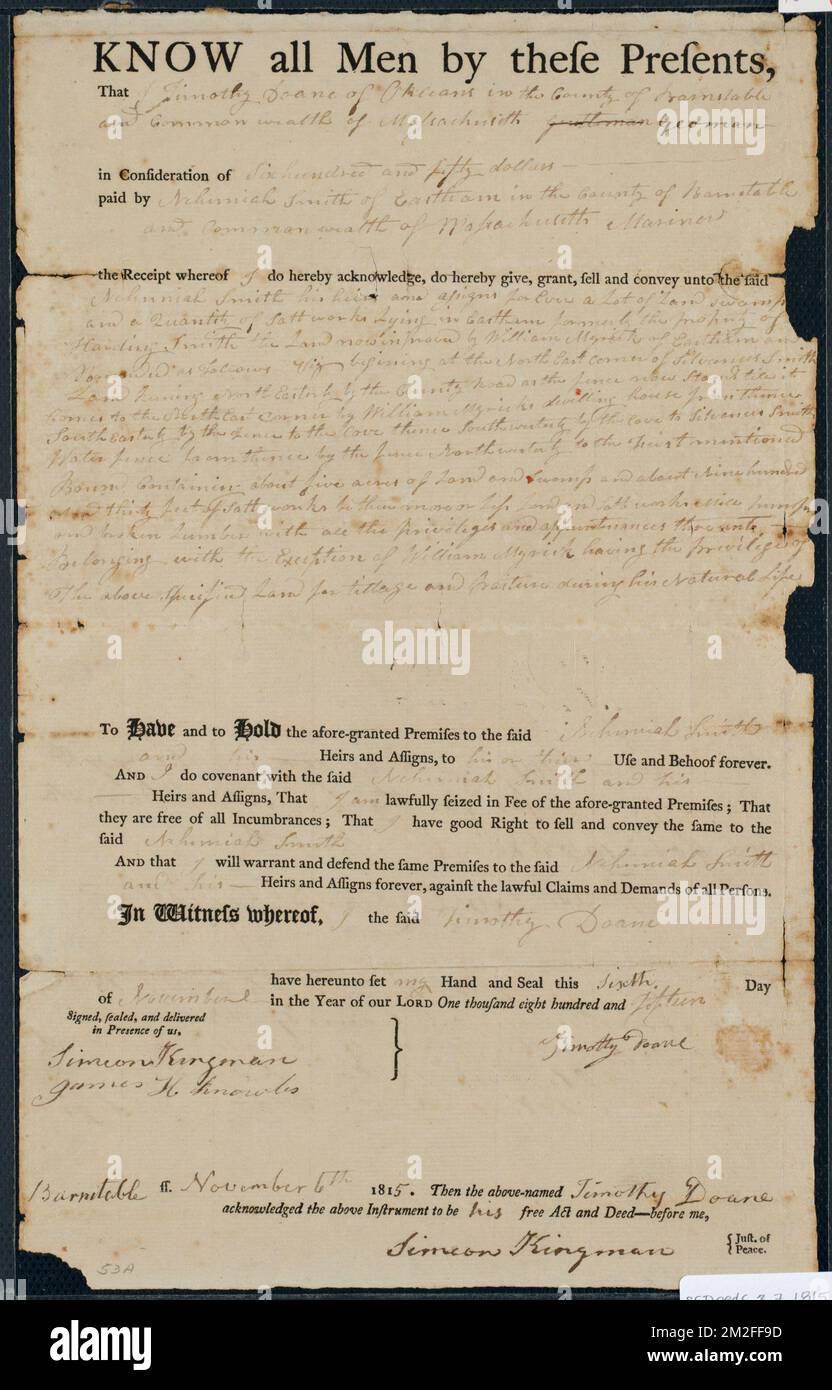 KNOW all Men by theſe Preſents,
That I Timothy Doane of Orleans in the County of Barnstable
and Common wealth of Massachusetts gentleman yeoman
in Conſideration of Six hundred and fifty dollars
paid by Nehimiah Smith of Eastham in the County of Barnstable
and Common wealth of Massachusetts Marinor
the Receipt whereof I do hereby acknowledge, do hereby give, grant, ſell and convey unto the ſaid
Nehimiah Smith his heirs and assigns for Ever a Lot of Land Swamp
and a Quantity of Salt works Lying in Eastham formerly the property of
Harding Smith the Land now improved by William Myrick of Eastham and
Bounded as follows Viz begining at the North East corner of Silvanus Smith
Land Runing North Easterly by the County Road as the fence now Stands till it
Comes to the North East corner by William Myricks dwelling house from thence
South Easterly by the fence to the Cove thence South westerly by the Cove to Silvanus Smith
Water fence from thence by the fence North westerly to the first mentioned
Bound Containin about five acres of Land and Swamp and about Nine hundred
and thirty feet of Salt works be them more or less Land and Salt works mill pumps
and broken Lumber with all the Privileges and appurtinances there unto
Belonging with the Exception of William Myrick having the privilige of
the above Specified Land for tillage and Pasture during his Natural Life
To Have and to Hold the afore-granted Premiſes to the ſaid Nehimiah Smith
and his Heirs and Aſſigns, to his or their Uſe and Behoof forever.
AND I do covenant with the ſaid Nehimiah Smith and his
Heirs and Aſſigns, That I am lawfully ſeized in Fee of the afore-granted Premiſes ; That
they are free of all Incumbrances ; That I have good Right to ſell and convey the ſame to the
ſaid Nehimiah Smith
AND that I will warrant and defend the ſame Premiſes to the ſaid Nehimiah Smith
and his Heirs and Aſſigns forever, againſt the lawful Claims and Demands of all Perſons.
In Witneſs whereof, I the ſaid Timothy Doane
have hereunto ſet my Hand and Seal this Sixth Day
of November in the Year of our LORD One thouſand eight hundred and fifteen
Signed, ſealed, and delivered
in Preſence of us,
Timothy Doane
Simeon Kingman
James H Knowles
Barnstable ſſ. November 6th 1815. Then the above-named Timothy Doane
acknowledged the above Inſtrument to be his free Act and Deed—before me,
Simeon Kingman { Juſt. of
Peace.
53A
alamy
Image ID: 2M2FF9D
www.alamy.com